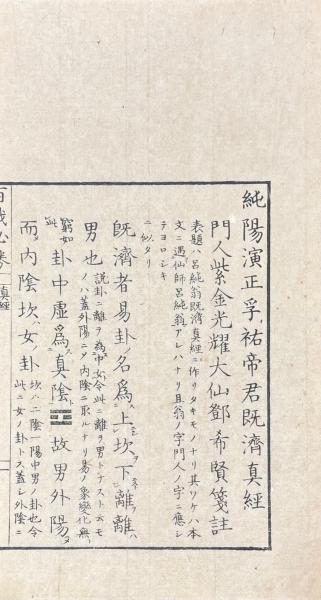 純陽演正孚祐帝君既濟真經
門人紫金光耀大仙鄧希賢箋註
表題ハ呂純翁既濟真經ニ作リタキモノナリ其ワケハ本
文ニ遇仙師呂純翁アレハナリ且翁ノ字門人ノ字ニ應シ
テヨロシキ
ニ似タリ
既濟者易卦ノ名爲上坎下離離ハ
男也
説卦ニ離ヲ為中女今此ニ離ヲ男トナスト云モ
ノハ蓋外陽ニメ内陰ニ取ルナリ易ノ象變化無
窮如
此
卦中虛爲真陰䷾故男外陽ニメ
而内陰坎ハ女ノ卦
坎ハ二陰一陽中男ノ卦也今
此ニ女ノ卦トス蓋シ外陰ニ
真經